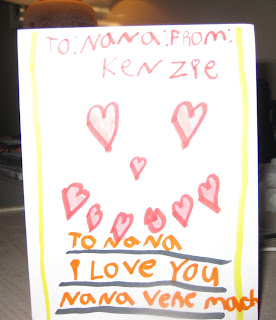 TO:NANA:FROM:
KENZIE
TO NANA
I LOVE YOU
NANA VERE mach